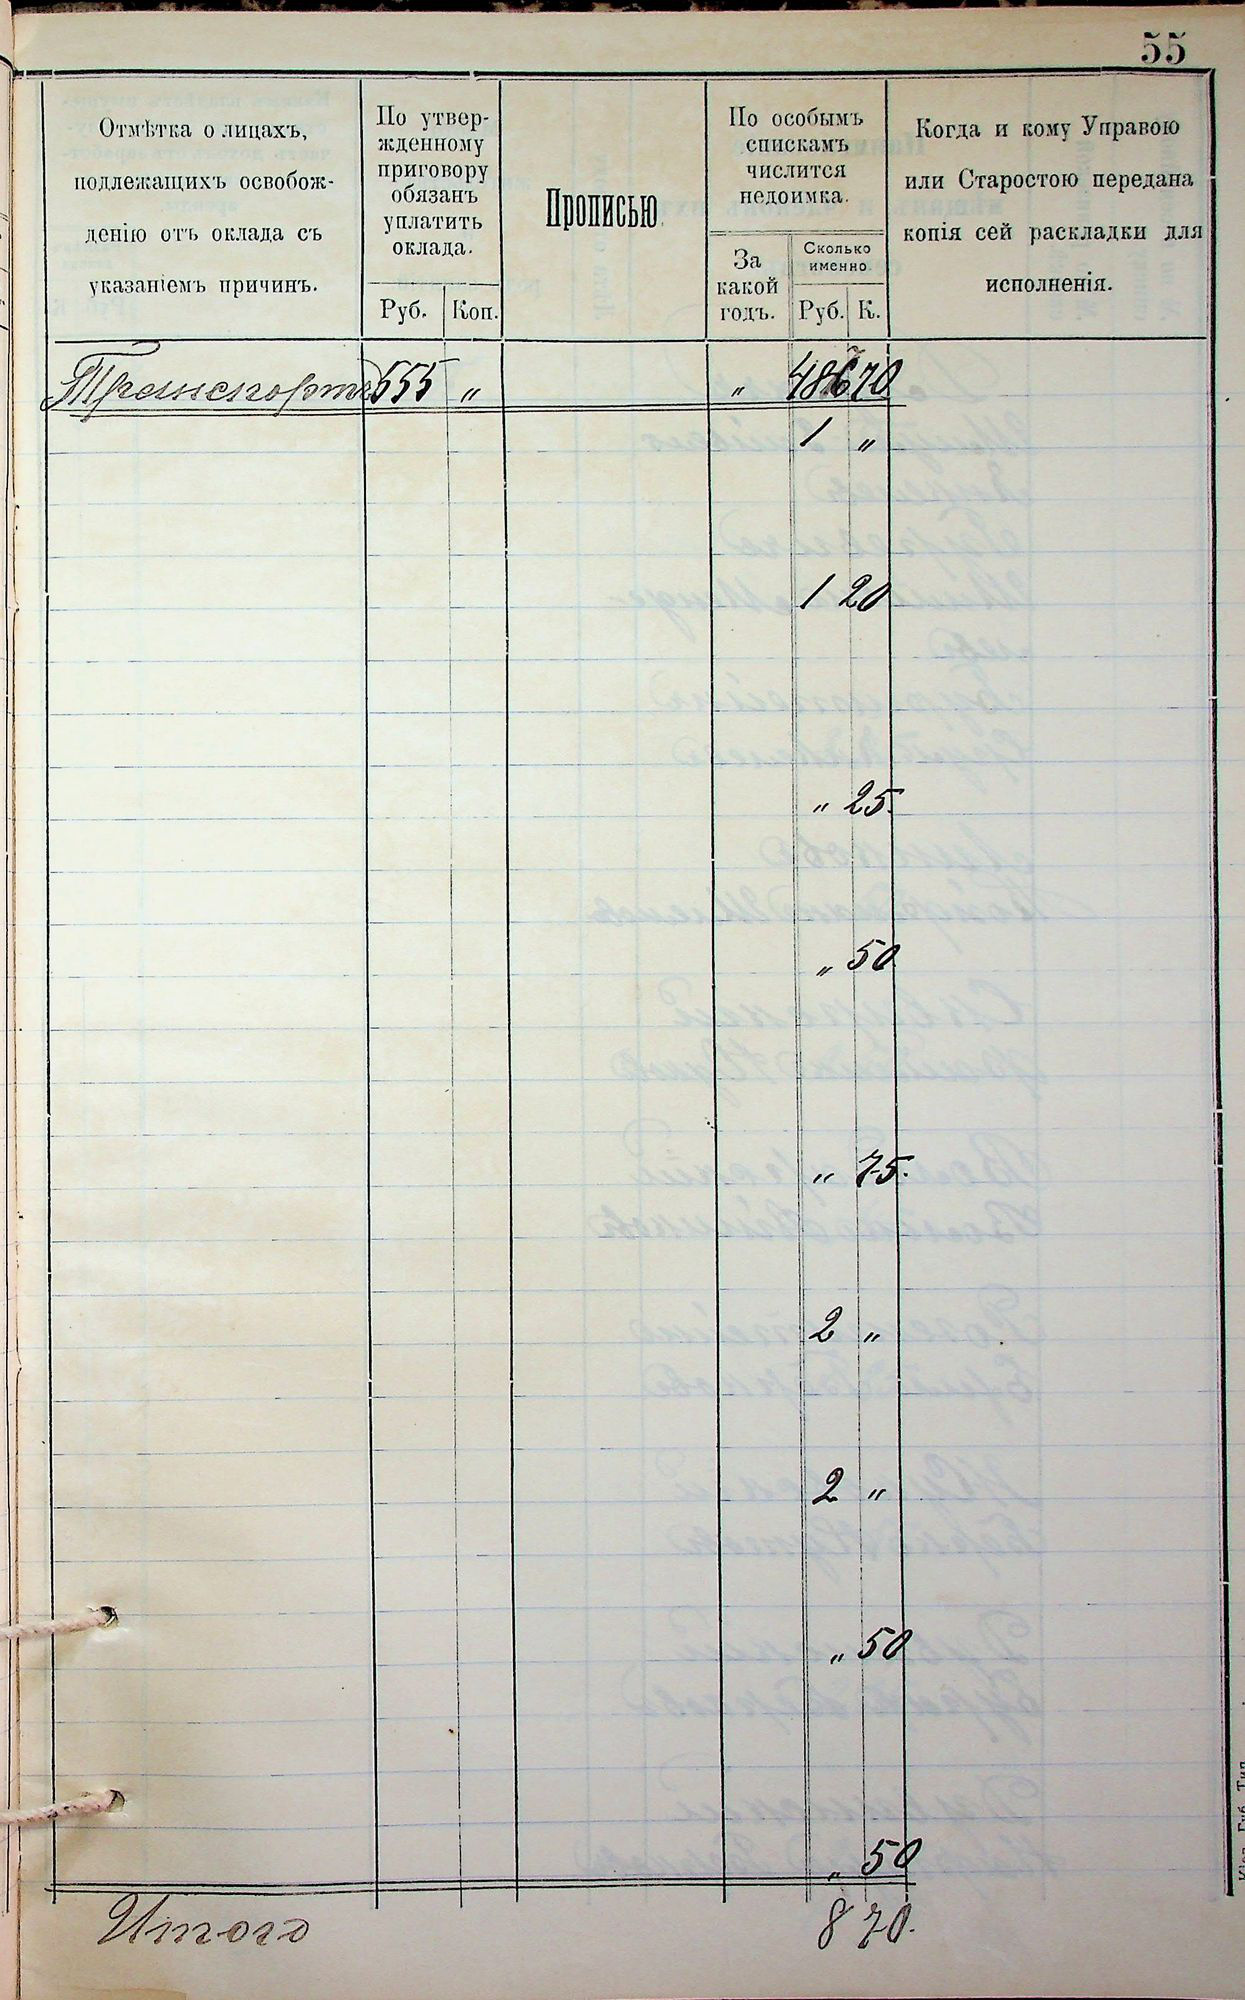 55
Отмѣтка о лицахъ,
подлежащихъ освобож-
денію отъ оклада съ
указаніемъ причинъ.
По утвер-
жденному
приговору
обязанъ
уплатить
оклада.
Руб. Коп.
Прописью.
По особымъ
спискамъ
числится
недоимка.
За
какой
годъ.
Сколько
именно.
Руб. К.
Когда и кому Управою
или Старостою передана
копія сей раскладки для
исполненія.
Транспортъ 555 „ „ 486 70
1 „
1 20
„ 25.
„ 50
„ 75.
2 „
2 „
„ 50
„ 50
Итого 8 70.
Кіев. Губ. Тип.